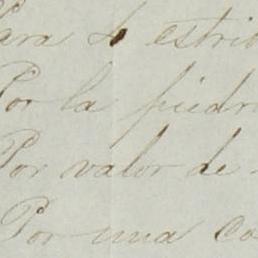 Para 4 estrib
Por la piedr
Por valor de
Por una co